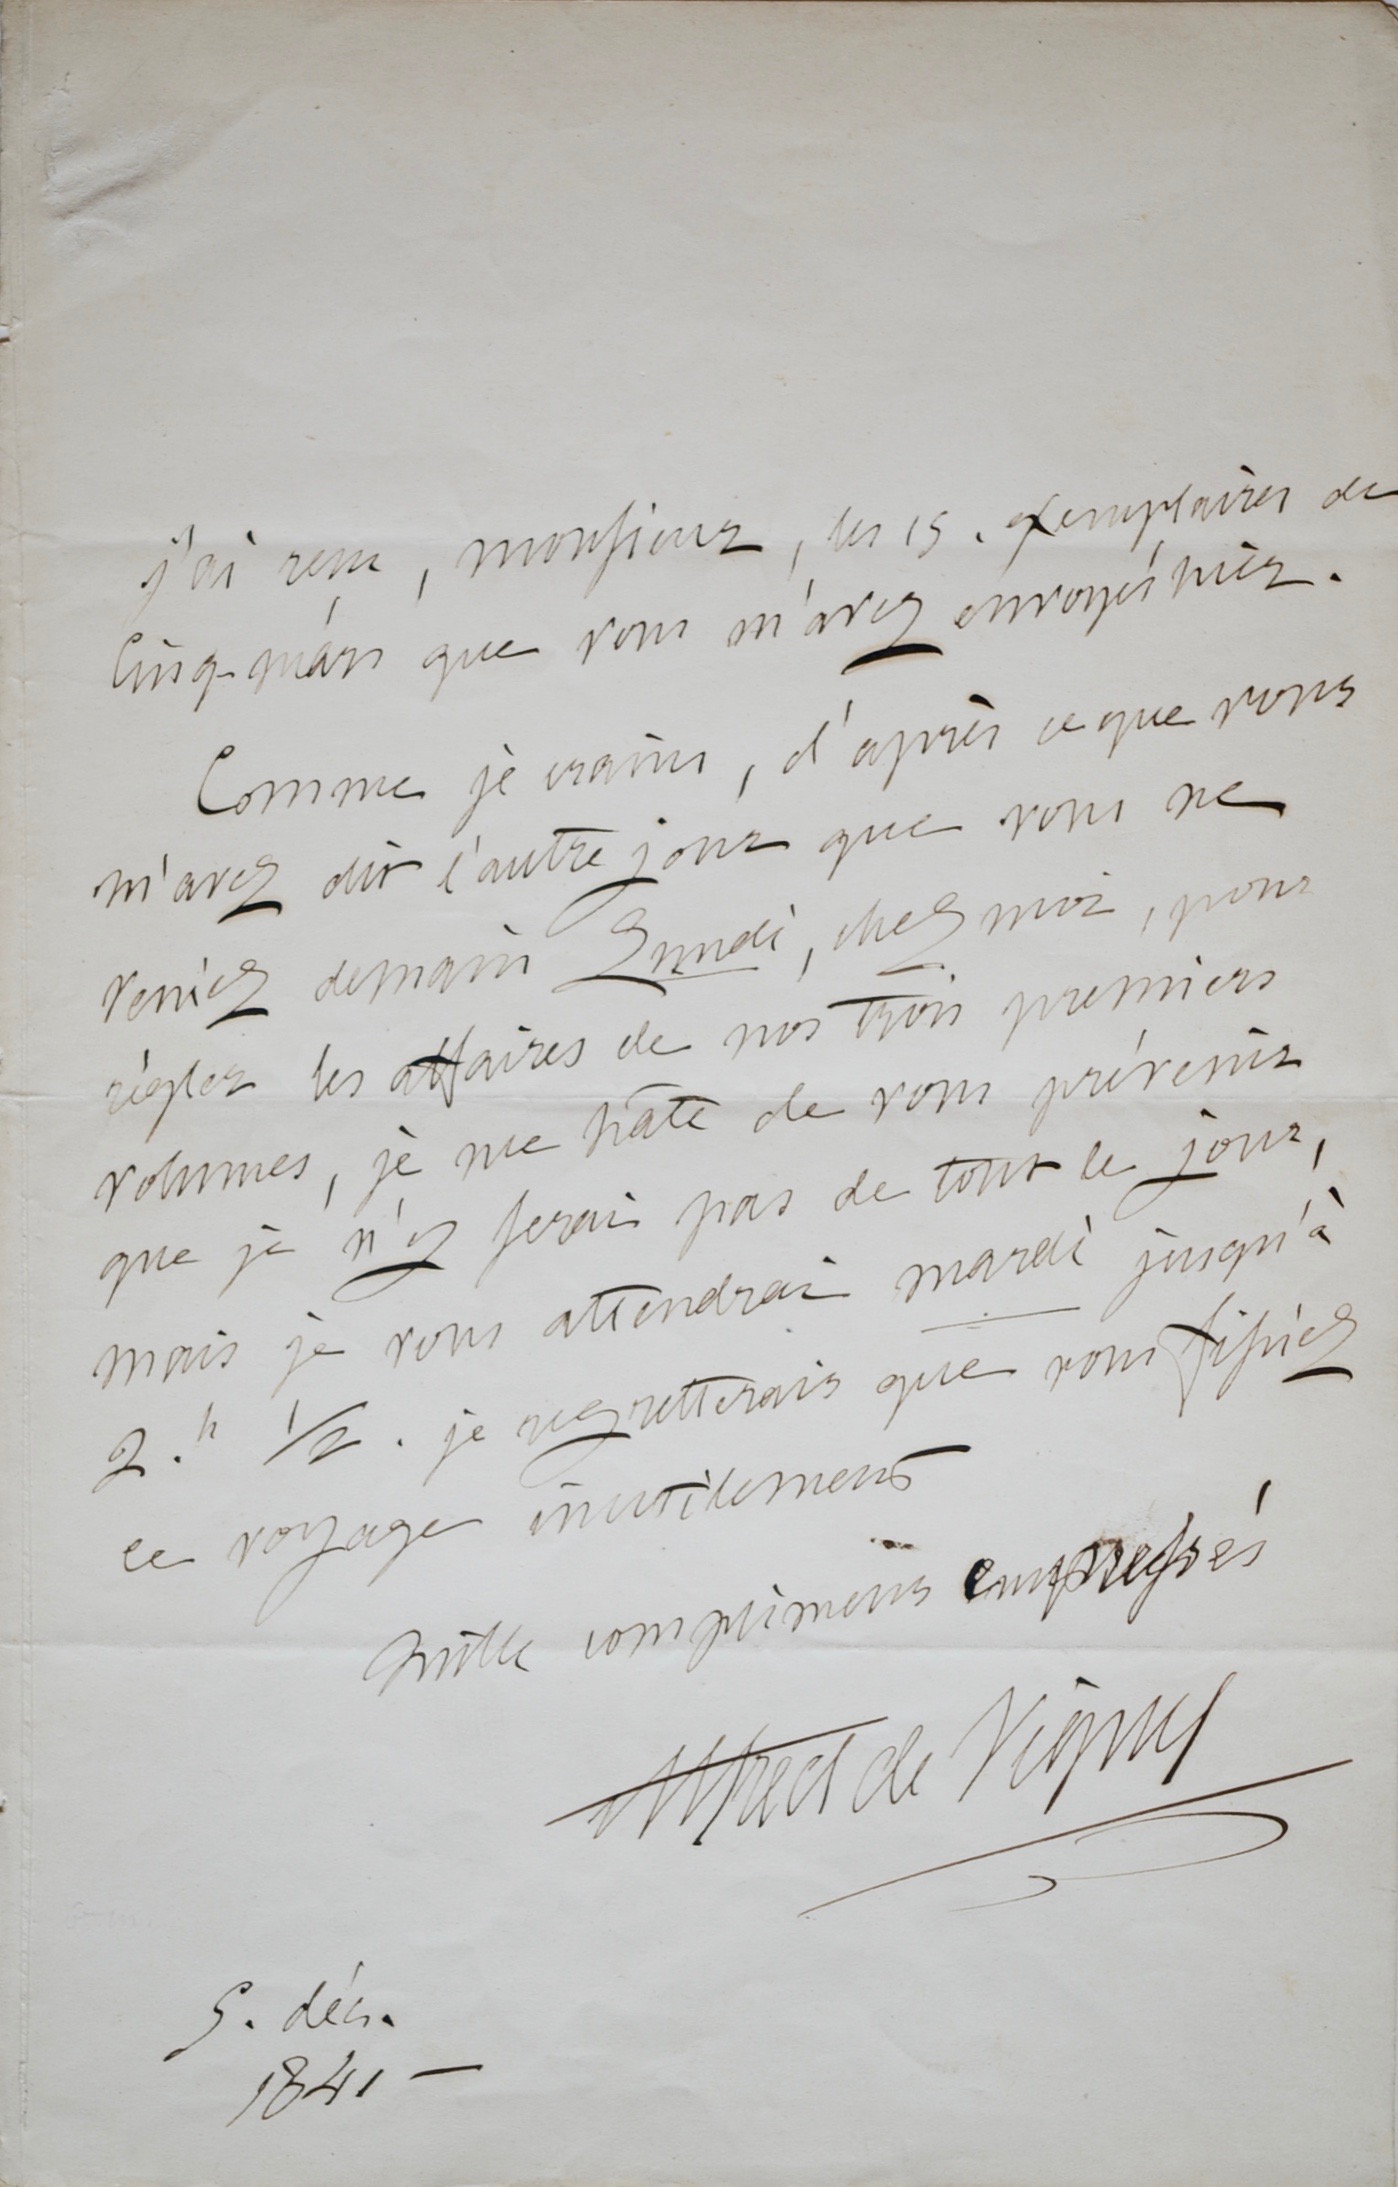 j'ai reçu, monsieur, les 15. exemplaires de
Cinq-mars que vous m'avez envoyés hier.
Comme je crains, d'après ce que vous
m'avez dit l'autre jour que vous ne
veniez demain Lundi, chez moi, pour
régler les affaires de nos trois premiers
volumes, je me hâte de vous prévenir
que je n'y serai pas de tout le jour,
mais je vous attendrai mardi jusqu'à
2.h 1/2. je regretterais que vous fissiez
ce voyage inutilement
Mille complimens empressés
Alfred de Vigny
5. déc.
1841 –